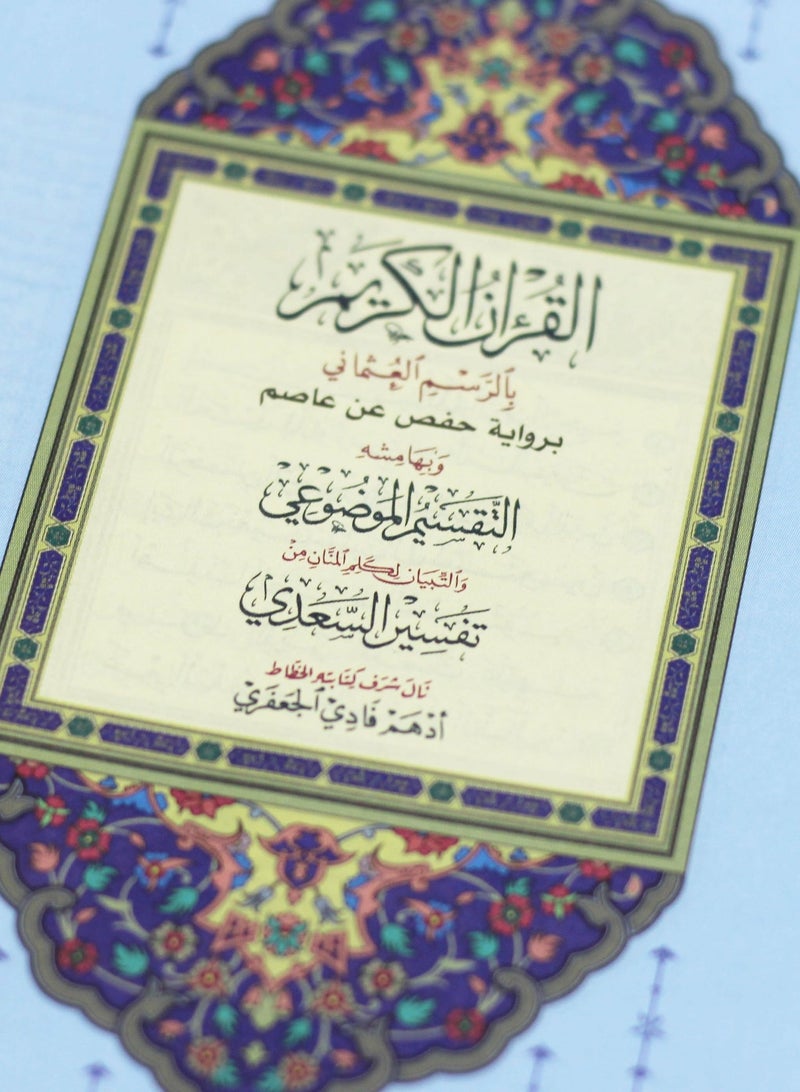 القرءان الكريم
بِٱلرَّسْمِ ٱلْعُثْمَانِي
برواية حفص عن عاصم
وَبِهَامِشِهِ
التَّقْسِيْمُ المَوْضُوْعِي
وَٱلتِّبْيَان لِكَلِمِ ٱلْمَنَّانِ مِنْ
تَفْسِيْرِ السَّعْدِي
نَالَ شَرَفَ كِتَابَتِهِ الخَطَّاط
أَدْهَمْ فَادِيْ ٱلْجَعْفَرِيْ